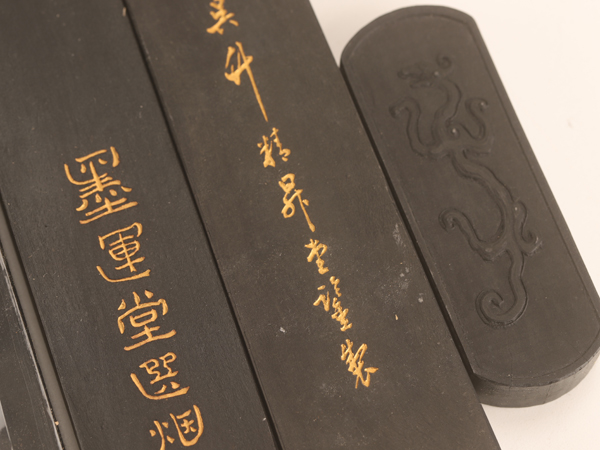 呉竹精昇堂謹製
墨運堂選烟